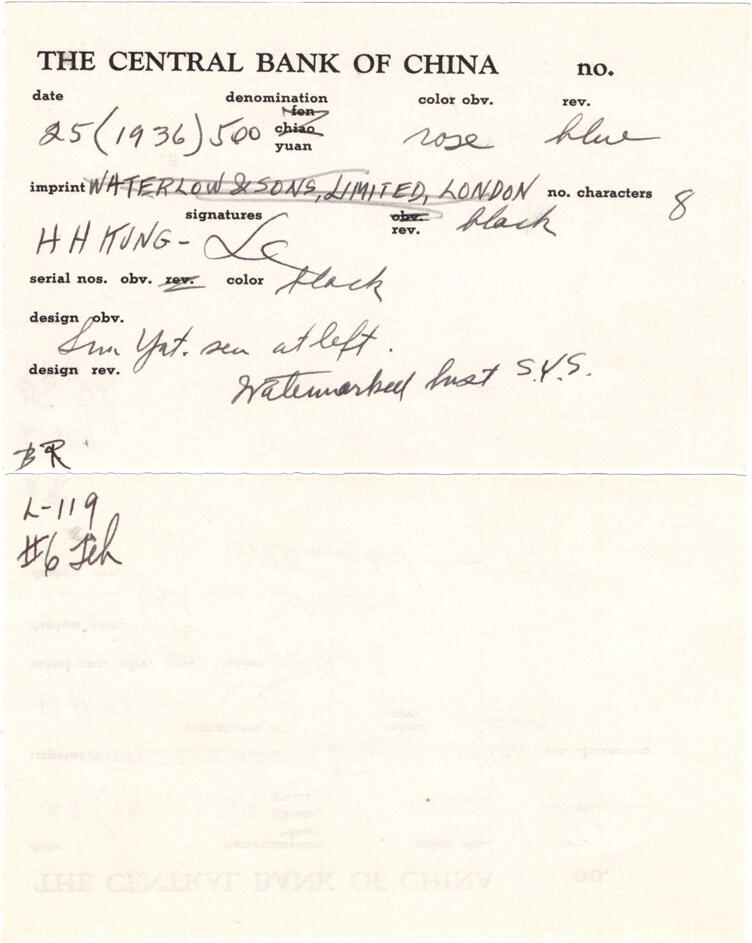 THE CENTRAL BANK OF CHINA no.
date denomination color obv. rev.
25 (1936) 500 fen chiao yuan rose blue
imprint WATERLOW & SONS, LIMITED, LONDON no. characters 8
signatures obv. rev. black
H H KUNG -
serial nos. obv. rev. color black
design obv.
Sun Yat. sen at left.
design rev.
Watermarked bust S.Y.S.
BR
L-119
#6